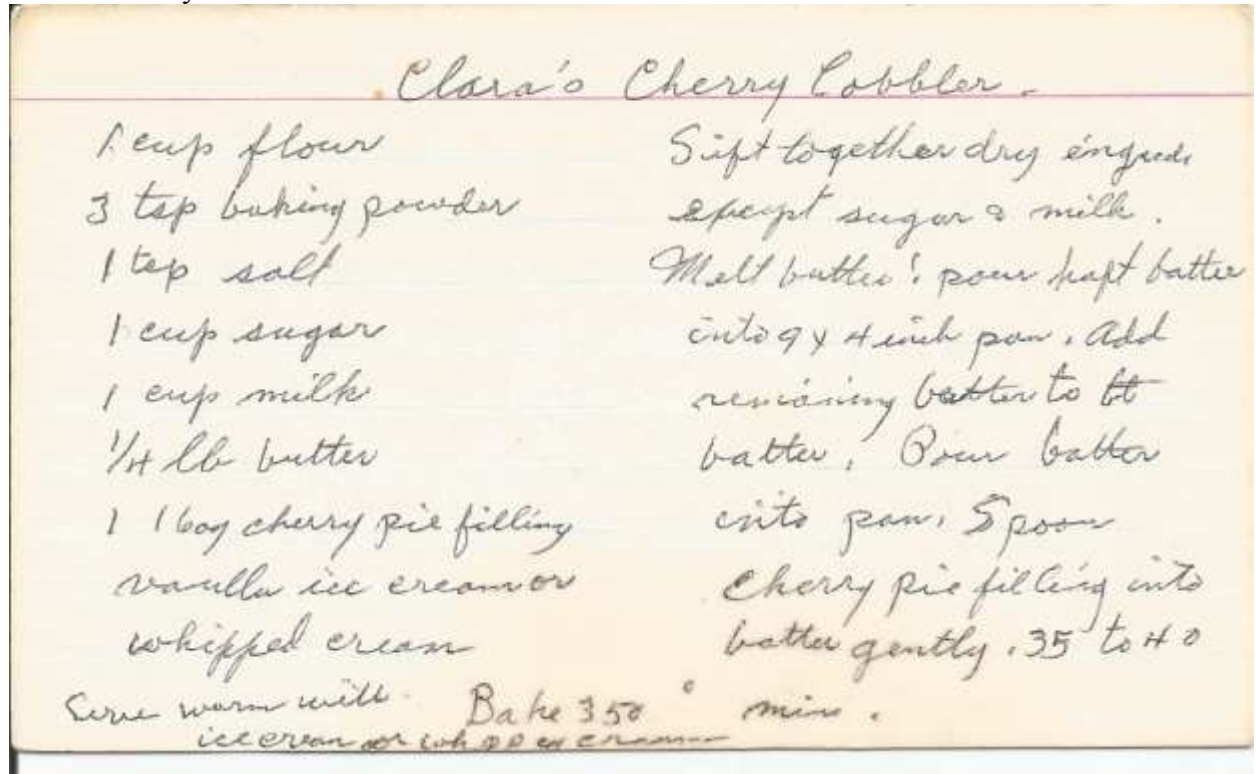 Clara's Cherry Cobbler.
1 cup flour
3 tsp baking powder
1 tsp salt
1 cup sugar
1 cup milk
1/4 lb butter
1 16oz cherry pie filling
vanilla ice cream or
whipped cream
Serve warm with
ice cream or whipped cream
Sift together dry
except sugar & milk.
Melt butter! pour half batter
into 9 x 4 inch pan. Add
remaining to
batter. Pour batter
into pan. Spoon
cherry pie filling into
batter gently. 35 to 40
Bake 350° mins.